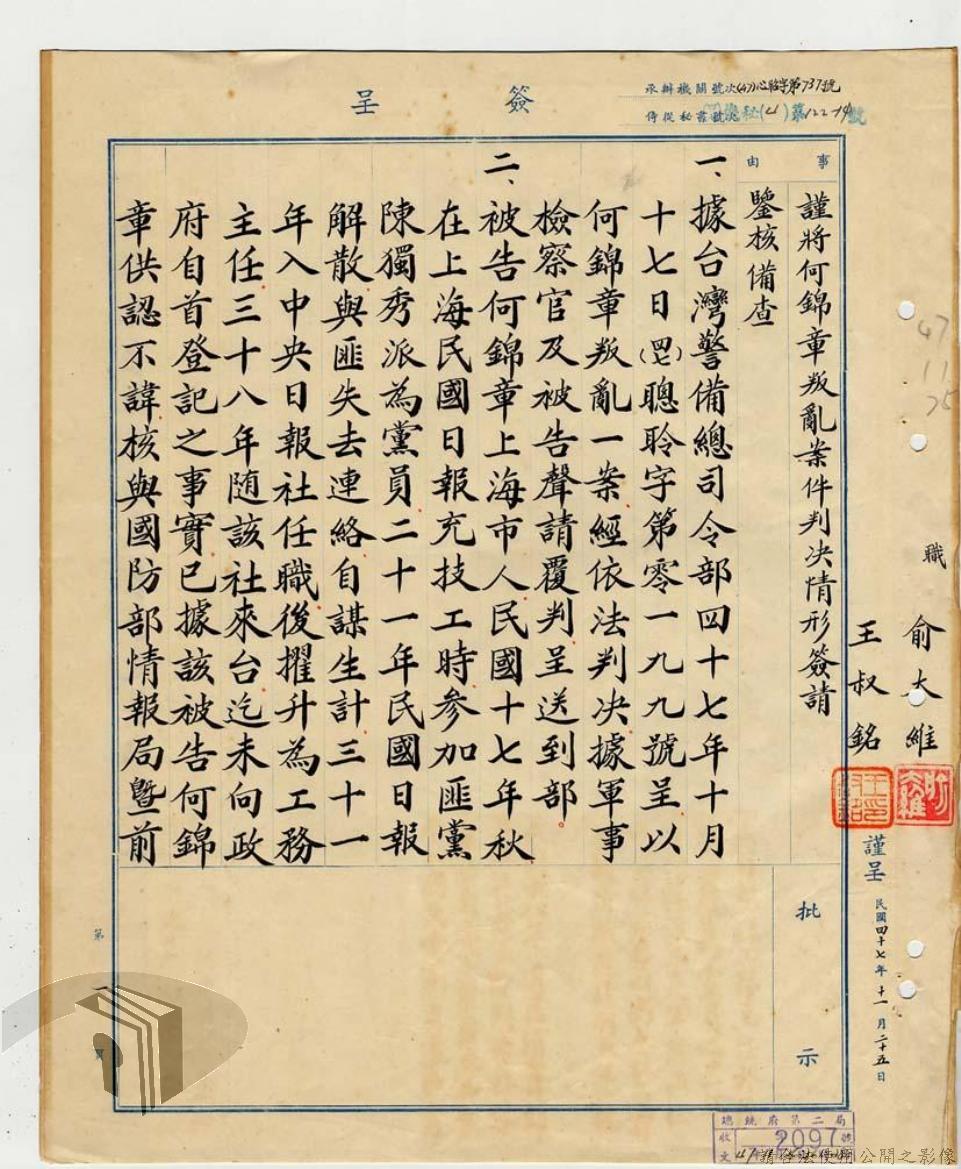 簽呈
承辦機關號次(47)心昭字第737號
侍從秘書號次
事由
謹將何錦章叛亂案件判決情形簽請
鑒核備查
一、據台灣警備總司令部四十七年十月
十七日(四七)聰聆字第零一九九號呈以
何錦章叛亂一案經依法判決據軍事
檢察官及被告聲請覆判呈送到部。
二、被告何錦章上海市人民國十七年秋
在上海民國日報充技工時參加匪黨
陳獨秀派為黨員二十一年民國日報
解散與匪失去連絡自謀生計三十一
年入中央日報社任職後擢升為工務
主任三十八年随該社來台迄未向政
府自首登記之事實已據該被告何錦
章供認不諱核與國防部情報局暨前
批示
職
俞大維
王叔銘
謹呈
民國四十七年十一月二十五日
47
11
25
第一頁
總統府第二局
收文
2097號
請合法使用公開之影像